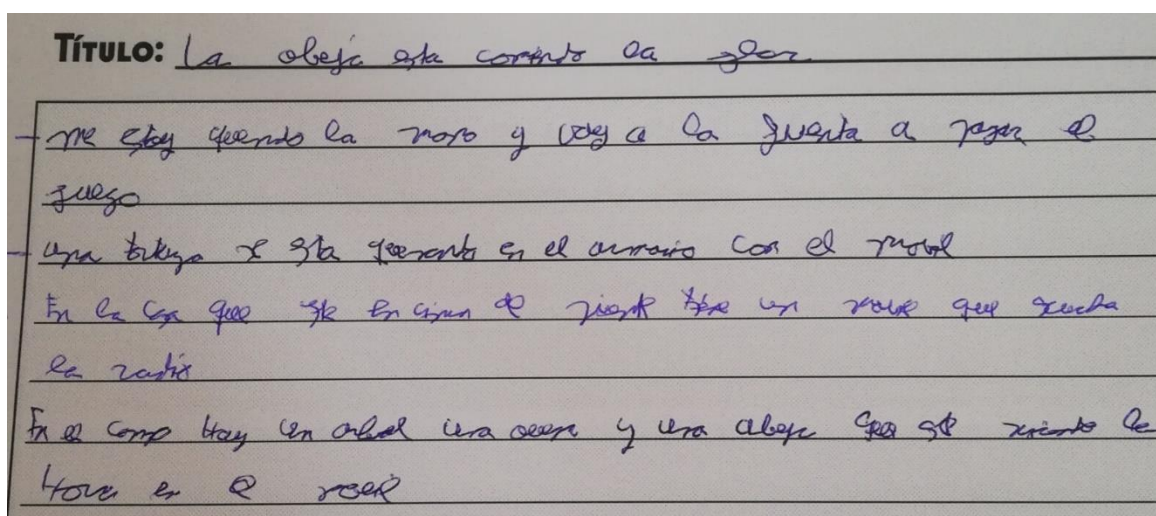 TÍTULO: La obeja esta comiendo la flor
me estoy quemando la mano y voy a la fuenta a pagar el
fuego
una tortuga se esta quemando en el armario con el movil
En la casa que esta en cima de tiene un que escucha
la radio
En el campo Hay un arbol una y una abeja que esta la
Hora en el movil